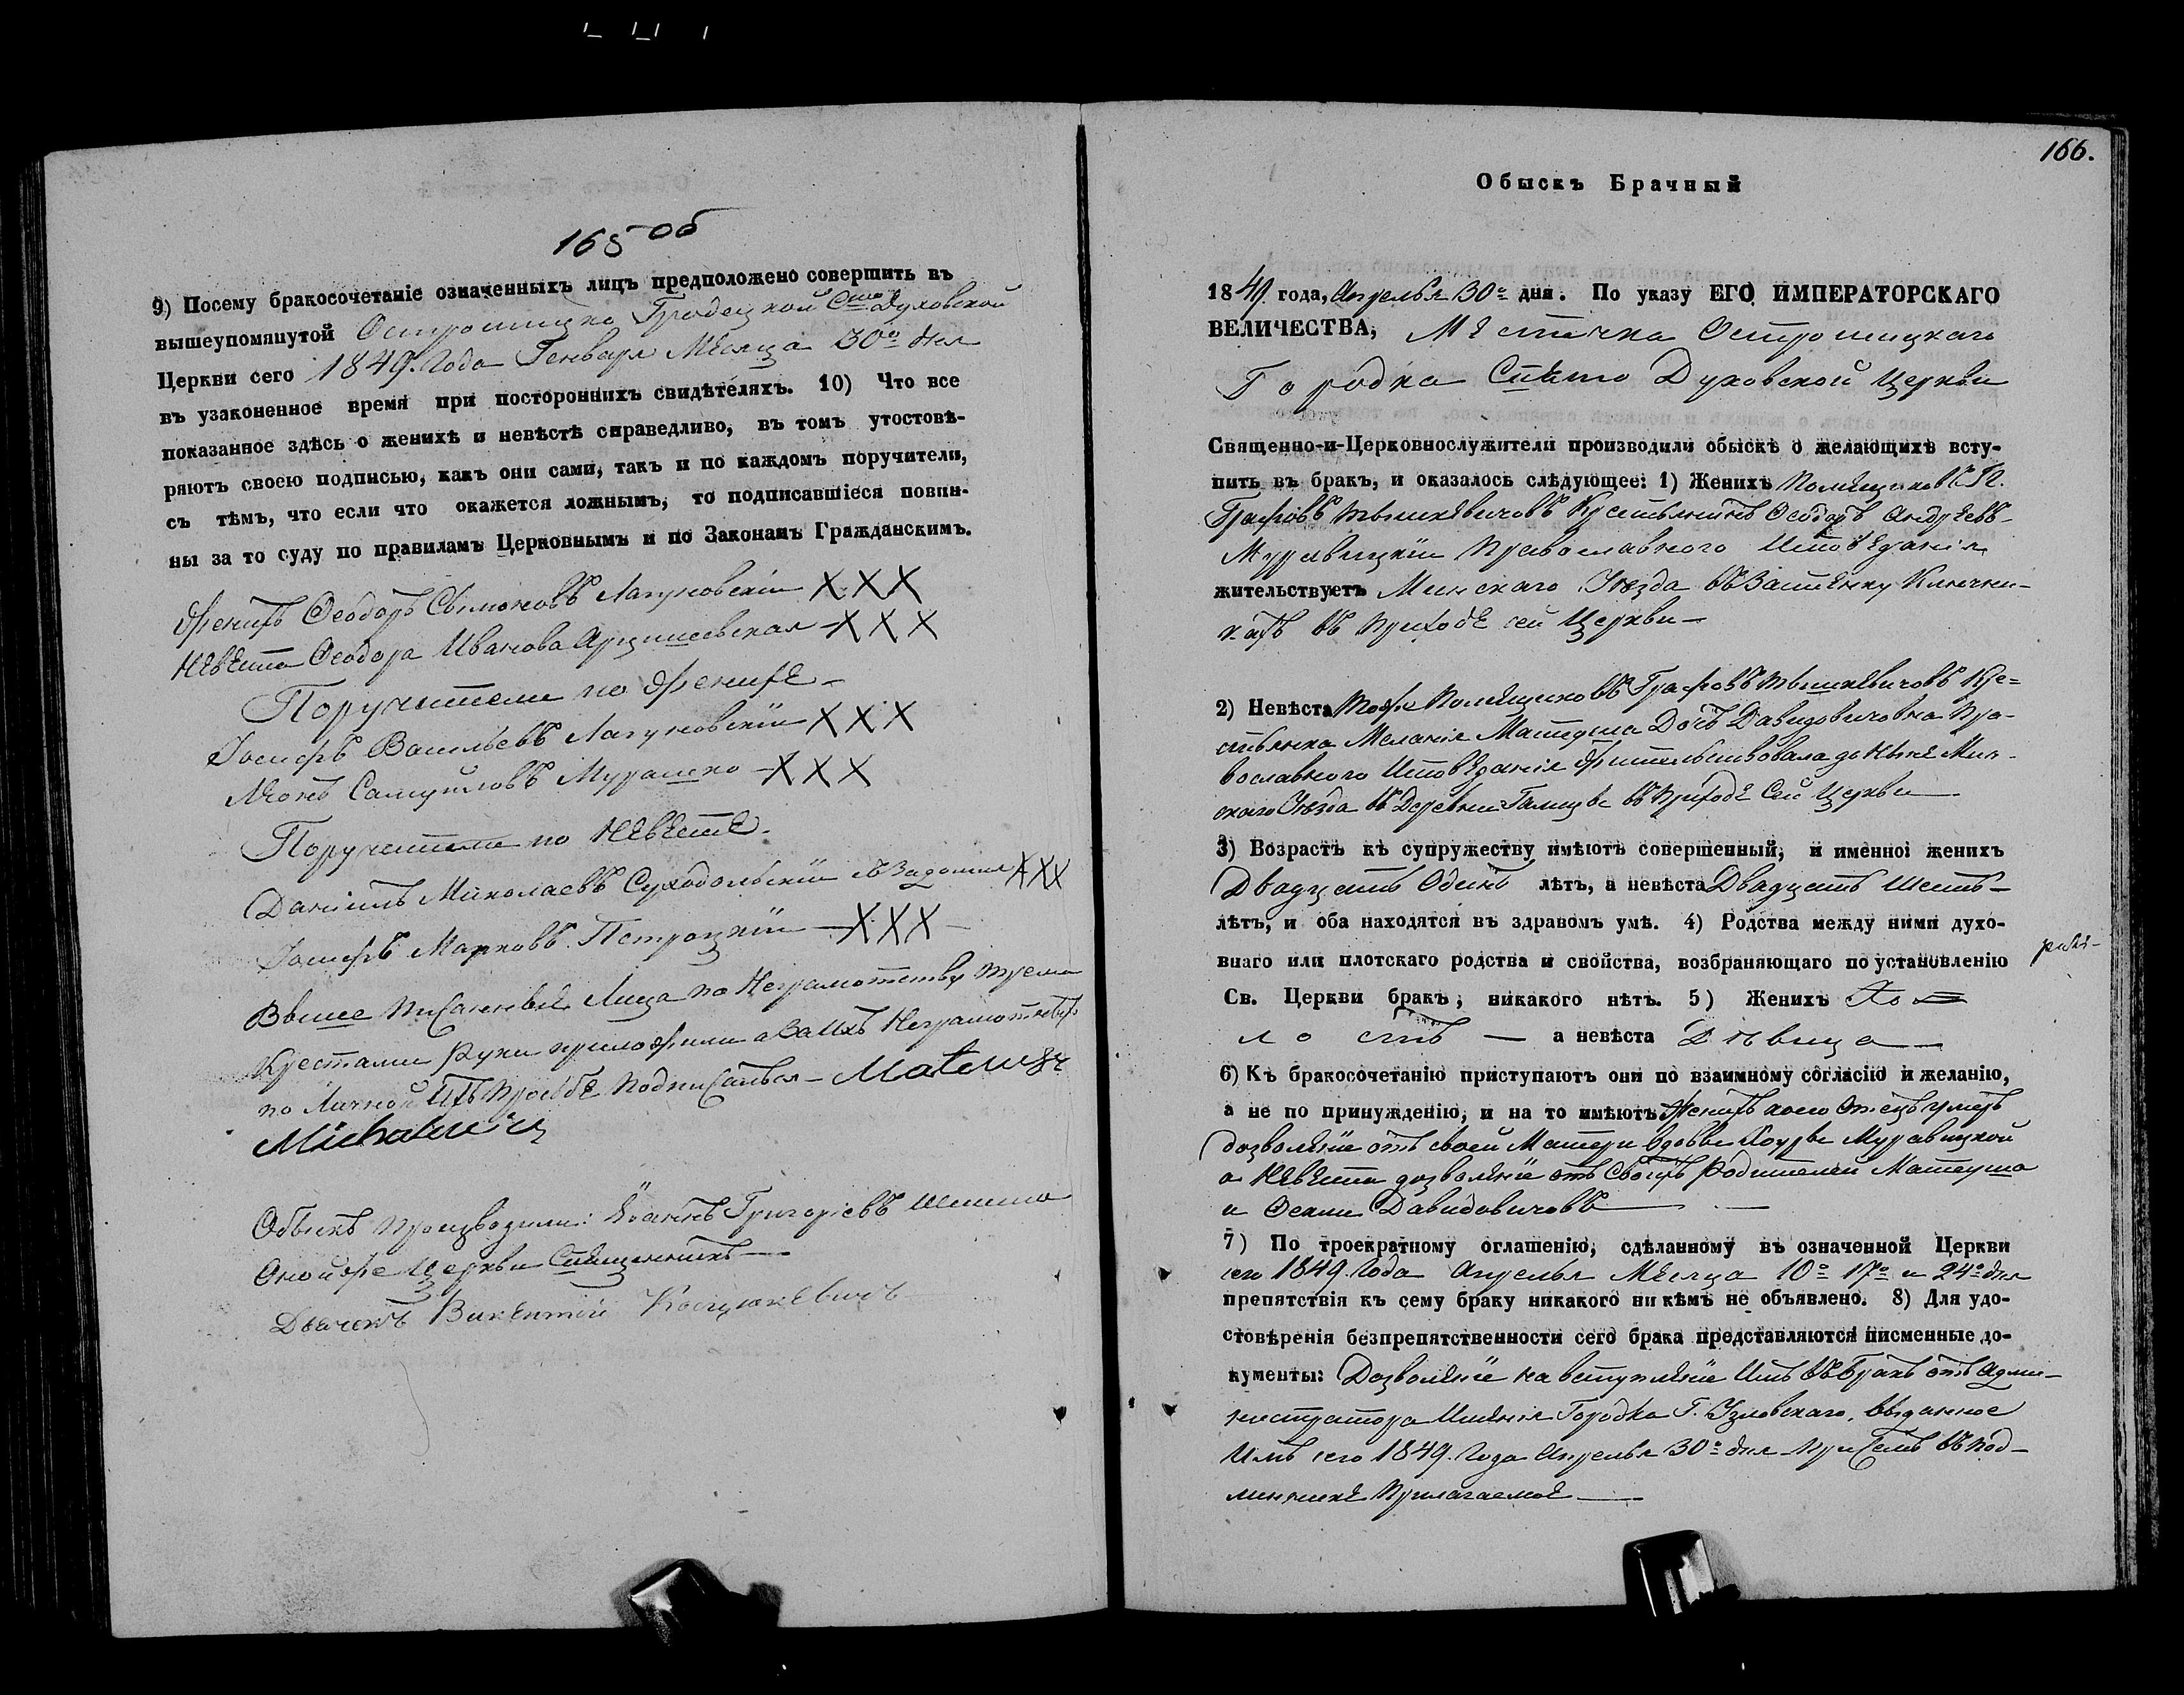 165 об
9) Посему бракосочетаніе означенныхъ лицъ предположено совершить въ
вышеупомянутой Острошицко Гродецкой Сто Духовской
Церкви сего 1849. Года Генваря Месяца 30го дня
въ узаконенное время при постороннихъ свидѣтеляхъ. 10) Что все
показанное здѣсь о женихѣ и невѣстѣ справедливо, въ томъ утостовѣ-
ряютъ своею подписью, какъ они сами, такъ и по каждомъ поручители,
съ тѣмъ, что если что окажется ложнымъ, то подписавшіеся повин-
ны за то суду по правиламъ Церковнымъ и по Законамъ Гражданскимъ.
Женихъ Ѳеодоръ Сымоновъ Лагуновскій ХХХ
Невѣста Ѳеодора Иванова Арцишевская ХХХ
Поручители по Женихѣ
Іосифъ Васильевъ Лагуновскій ХХХ
Леонъ Самуйловъ Мурашко ХХХ
Поручители по Невѣстѣ
Даніилъ Миколаевъ Суходольскій ХХХ
Іосифъ Марковъ Петроцкій ХХХ
Выше писанные Лица по Неграмотству тремя
Крестами Руки приложили а за ихъ Неграмотныхъ
по Личной ихъ Прозбѣ Подписалъся Mateusz
Michalewicz
Обыскъ Производили: Іоаннъ Григоріевъ
Оной же Церкви Священникъ
Дьячокъ Викентій
166.
Обыскъ Брачный
1849 года, Апрелья 30о дня. По указу ЕГО ИМПЕРАТОРСКАГО
ВЕЛИЧЕСТВА, Местечка Острошицкаго
Городка Свято Духовской Церкви
Священно-и-Церковнослужители производили обыскъ о желающихъ всту-
пить въ бракъ, и оказалось слѣдующее: 1) Женихъ Помещиковъ Г.Г.
Графовъ Тышкевичовъ Крестьянинъ Ѳеодоръ Андреевъ
Муравицкій Православного Исповеданія
жительствуетъ Минскаго Уезда въ Застенку
въ Приходе сей Церкви
2) Невѣста Техже Помещиковъ Графовъ Тышкевичовъ Кре-
стьянка Меланія Матеуша Дочь Давидовичовна Пра-
вославного Исповеданія Жительствовала до Ныне Мин-
скаго Уезда въ Деревни Галицы въ Приходе Сей Церкви
3) Возрастъ къ супружеству имѣютъ совершенный, и именно: женихъ
Двадцать Одинъ лѣтъ, а невѣста Двадцать Шесть
лѣтъ, и оба находятся въ здравомъ умѣ. 4) Родства между ними духо-
внаго или плотскаго родства и свойства, возбраняющаго по установленію
Св. Церкви бракъ, никакого нѣтъ. 5) Женихъ Хо
лостъ — а невѣста Дѣвица
6) Къ бракосочетанію приступаютъ они по взаимному согласію и желанію,
а не по принужденію, и на то имѣютъ Женихъ коего Отецъ умеръ
дозволеніе отъ своей Матери вдовы Муравицкой
а Невеста дозволеніе отъ Своихъ Родителей Матеуша
и Давидовичовъ
7) По троекратному оглашенію, сдѣланному въ означенной Церкви
сего 1849. Года Апрелья Месяца 10о 17о и 24о дня
препятствія къ сему браку никакого ни кѣмъ не объявлено. 8) Для удо-
стовѣренія безпрепятственности сего брака представляются писменные до-
кументы: Дозволеніе на вступленіе Имъ въ Бракъ отъ Адми-
нистратора Именія Городка Г. выданное
Имъ сего 1849. Года Апрелья 30о дня При Семъ въ Под-
линнике Прилагаемое